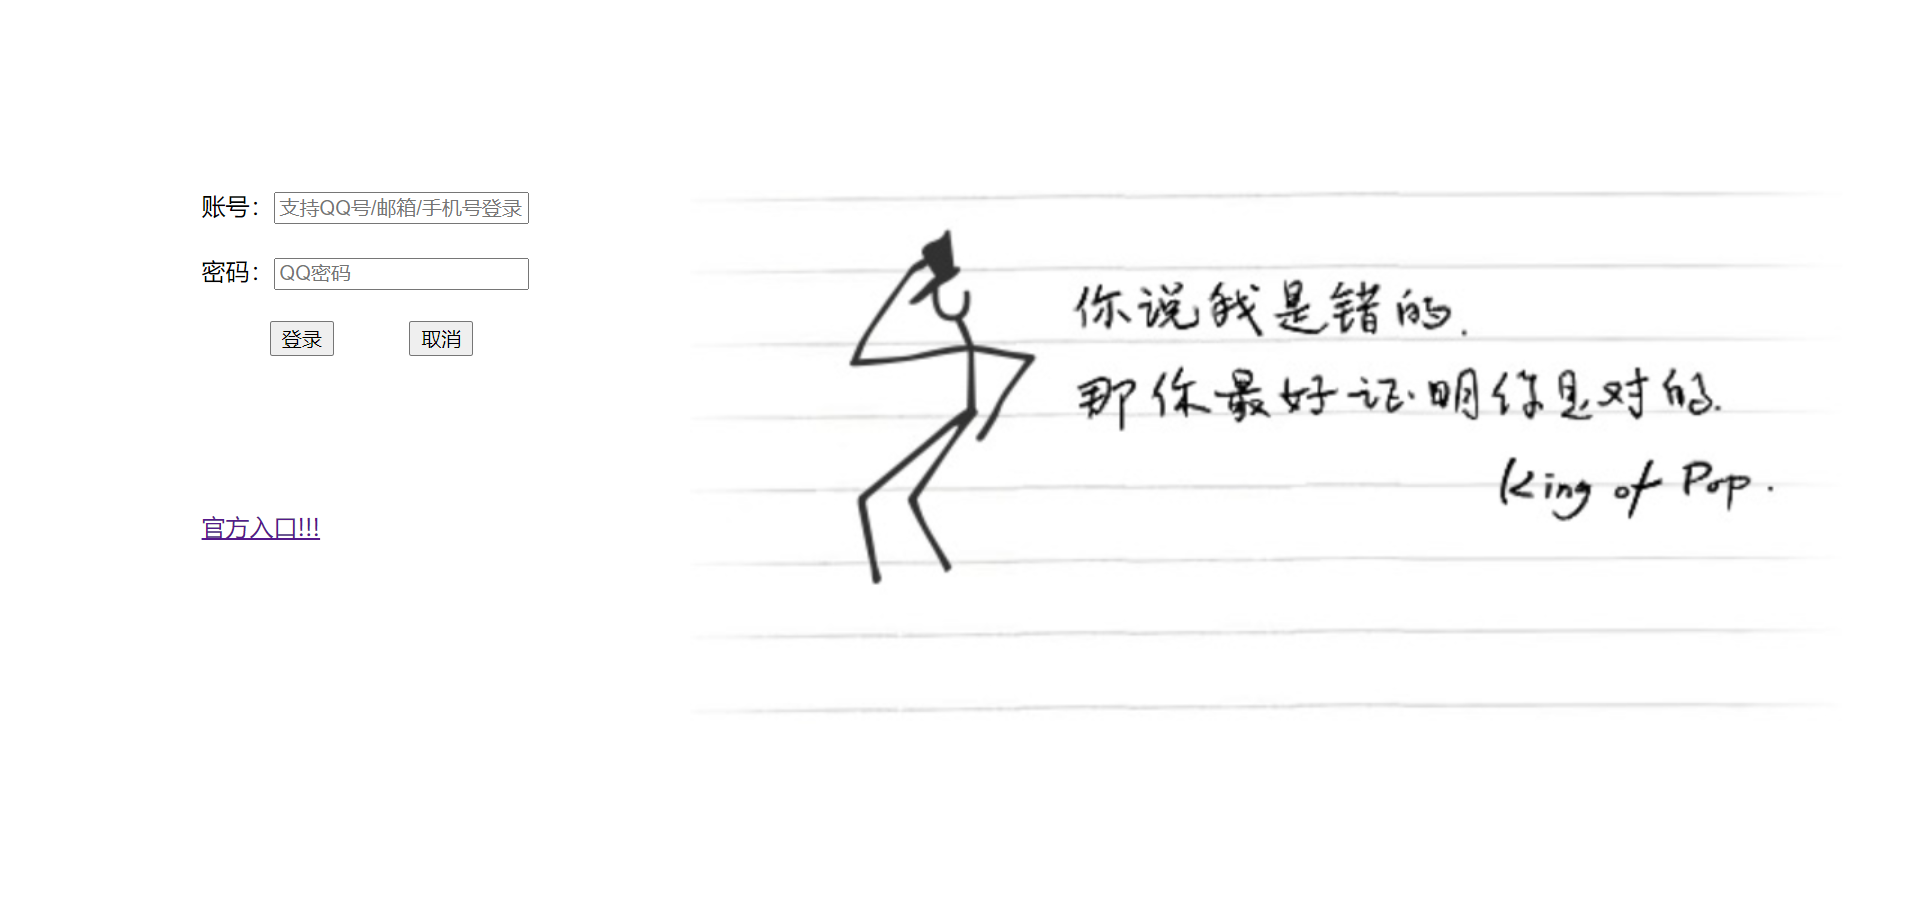 账号：支持QQ号/邮箱/手机号登录
密码：QQ密码
登录 取消
官方入口!!!
你说我是错的.
那你最好证明你是对的.
King of Pop.